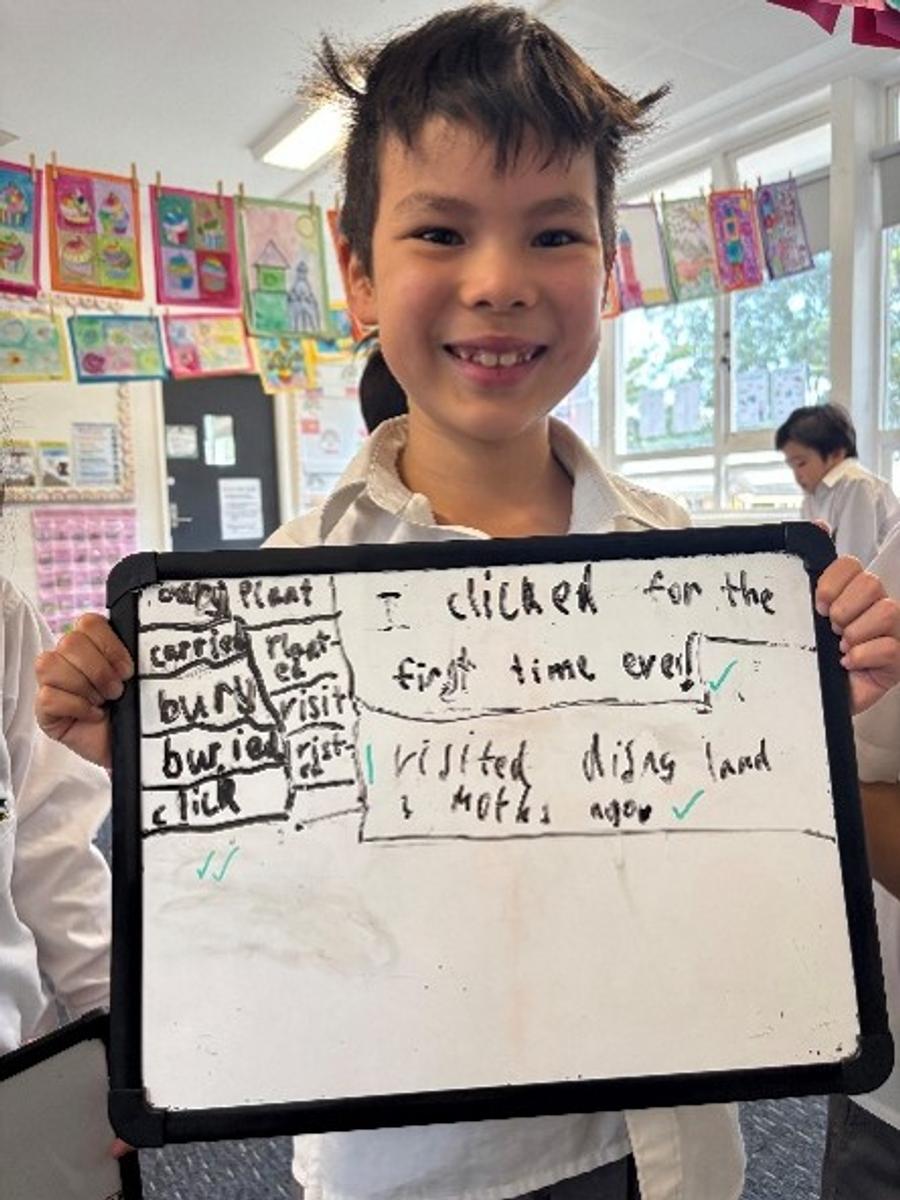 carry plant
carried plant-
ed
bury visit
buried vist-
ed
click
I clicked for the
first time ever!
I visited disny land
3 moths ago